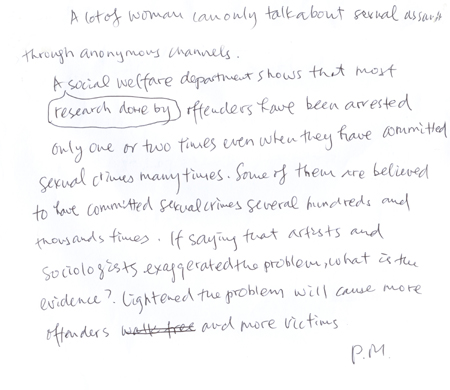 A lot of woman can only talk about sexual assault
through anonymous channels.
A social welfare department shows that most
research done by offenders have been arrested
only one or two times even when they have committed
sexual crimes many times. Some of them are believed
to have committed sexual crimes several hundreds and
thousands times. If saying that artists and
sociologists exaggerated the problem, what is the
evidence? Lightened the problem will cause more
offenders walk free and more victims
P.M.